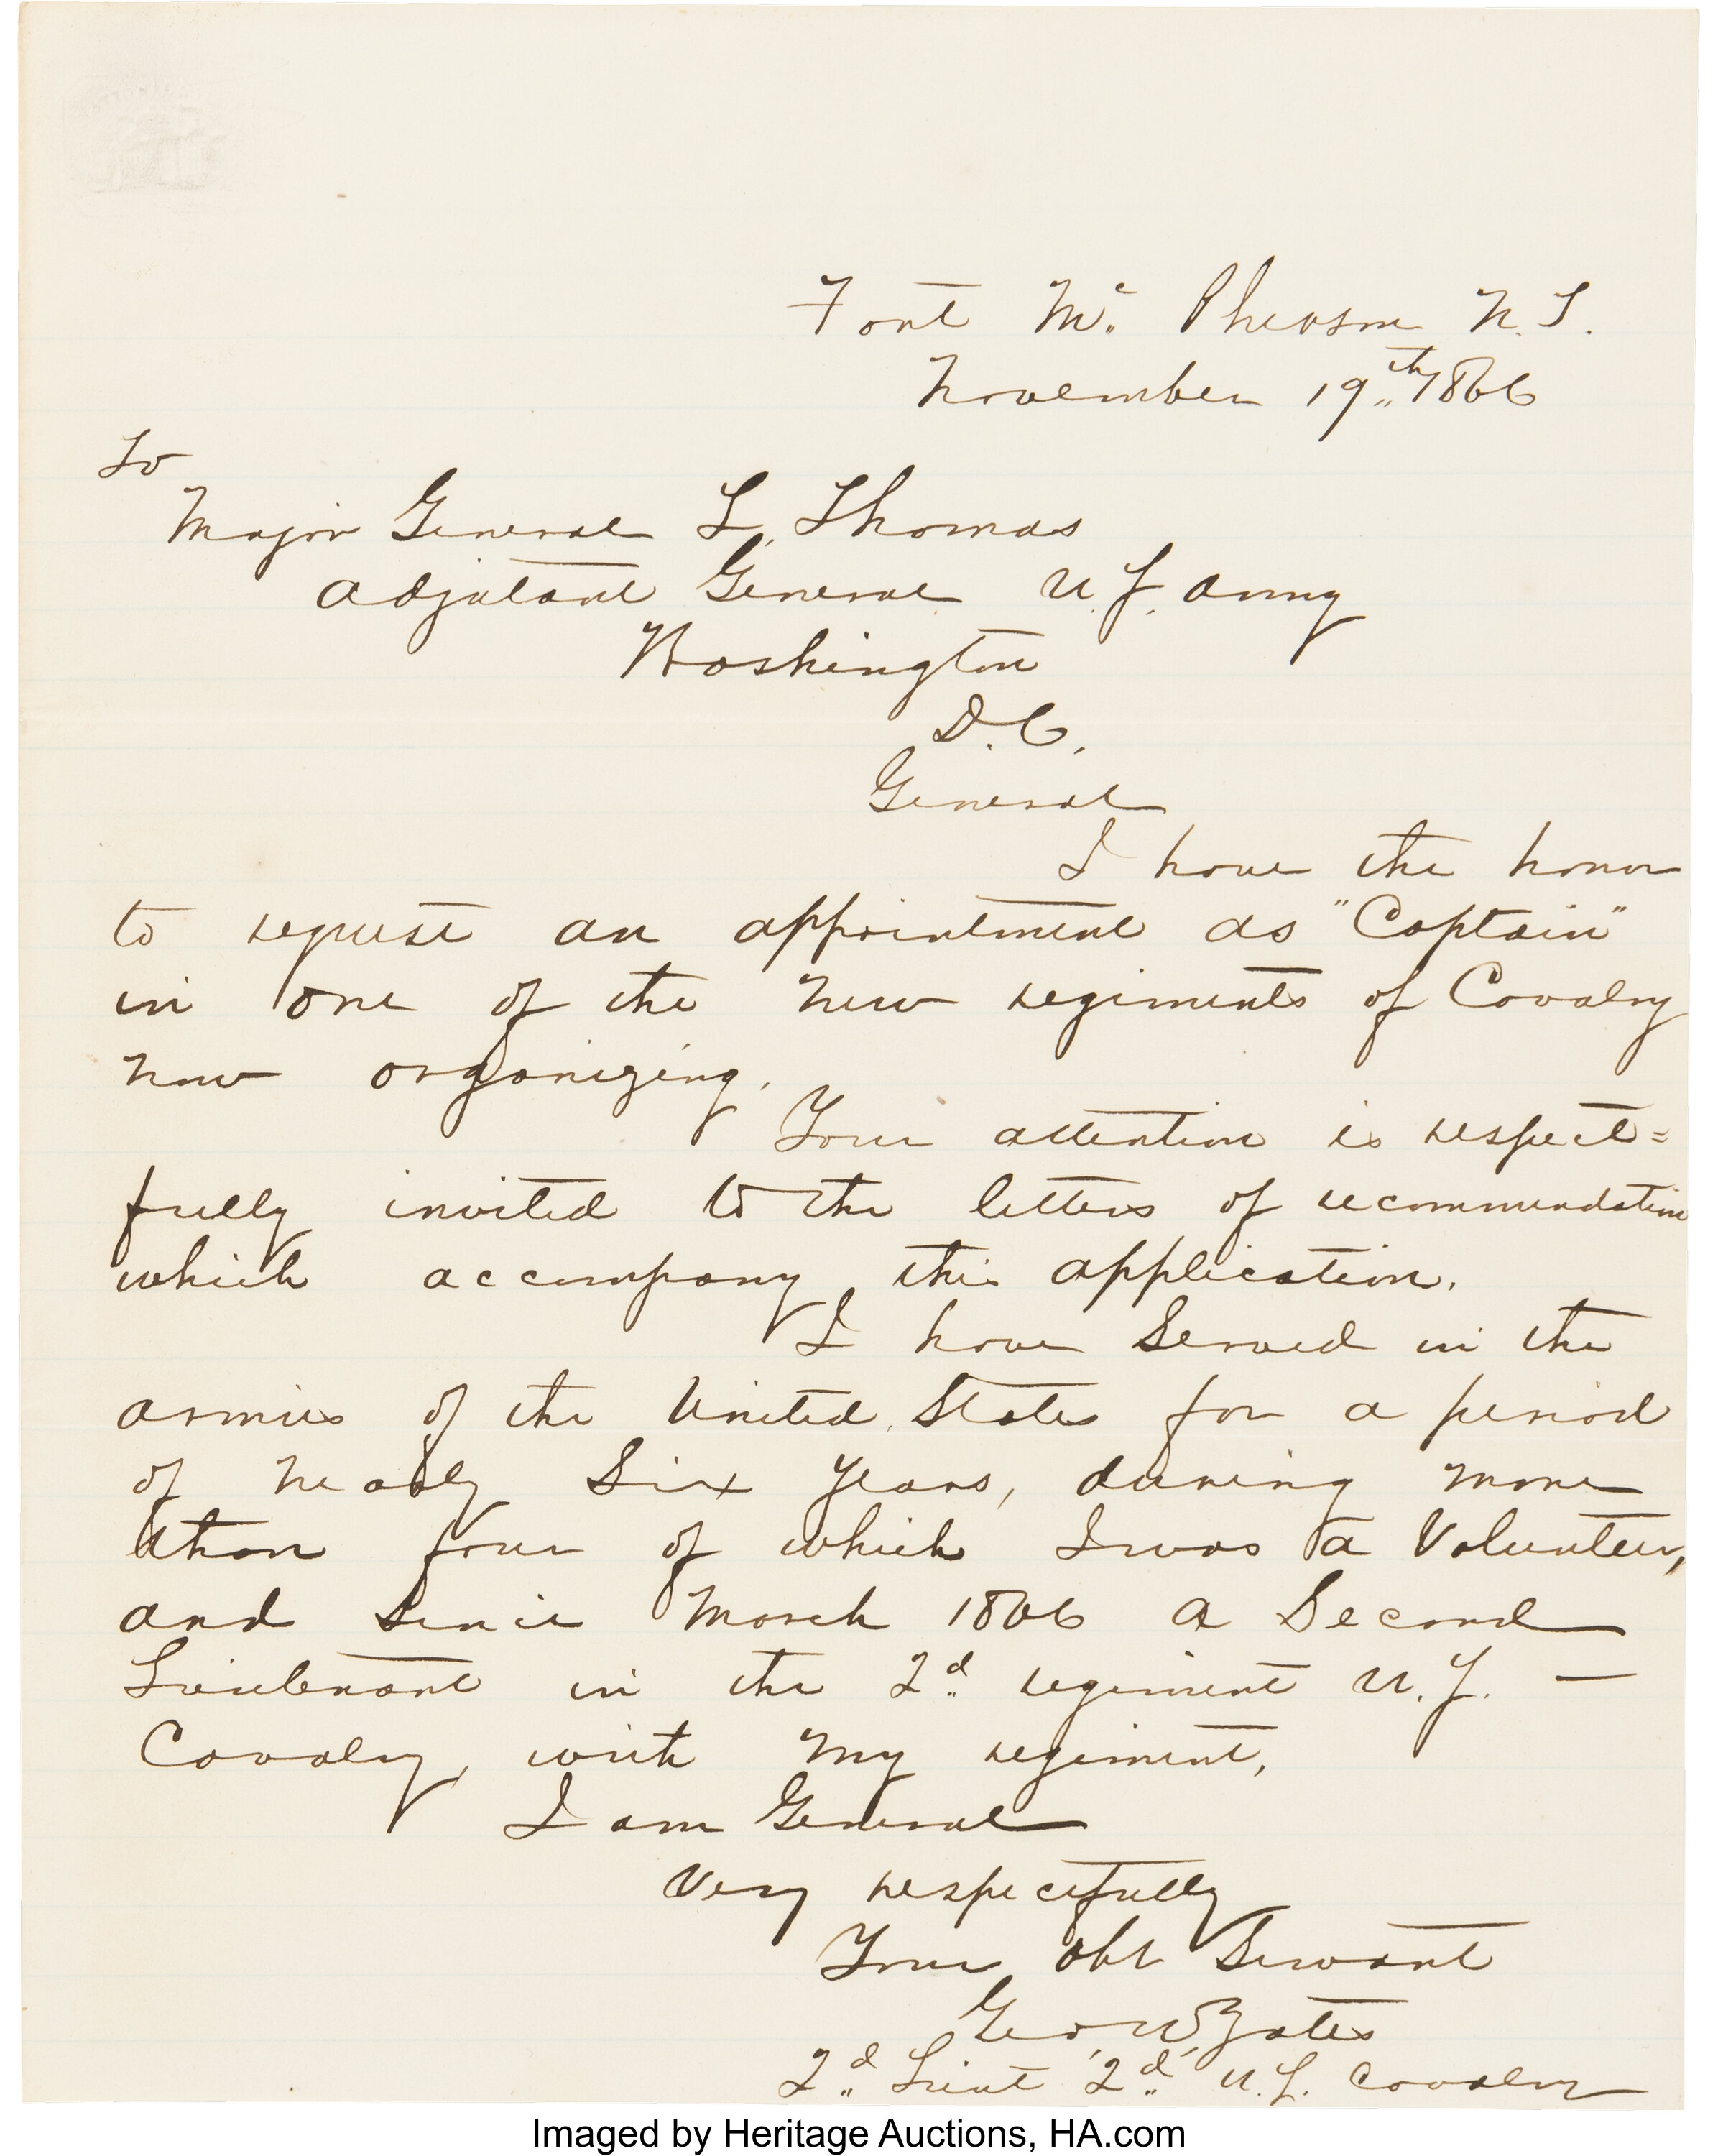 Fort Mc. Pherson N.T.
November 19th 1866
To
Major General L. Thomas
Adjutant General U.S. Army
Washington
D.C.
General
I have the honor
to request an appointment as "Captain"
in one of the new regiments of Cavalry
now organizing.
Your attention is respect=
fully invited to the letters of recommendation
which accompany this application.
I have Served in the
armies of the United States for a period
of nearly Six Years, during more
than four of which I was a Volunteer,
and since March 1866 a Second
Lieutenant in the 2d regiment U.S. —
Cavalry, with my regiment,
I am General
Very respectfully
Your obt Servant
Geo, W, Yates
2d Lieut 2d U.S. Cavalry
Imaged by Heritage Auctions, HA.com